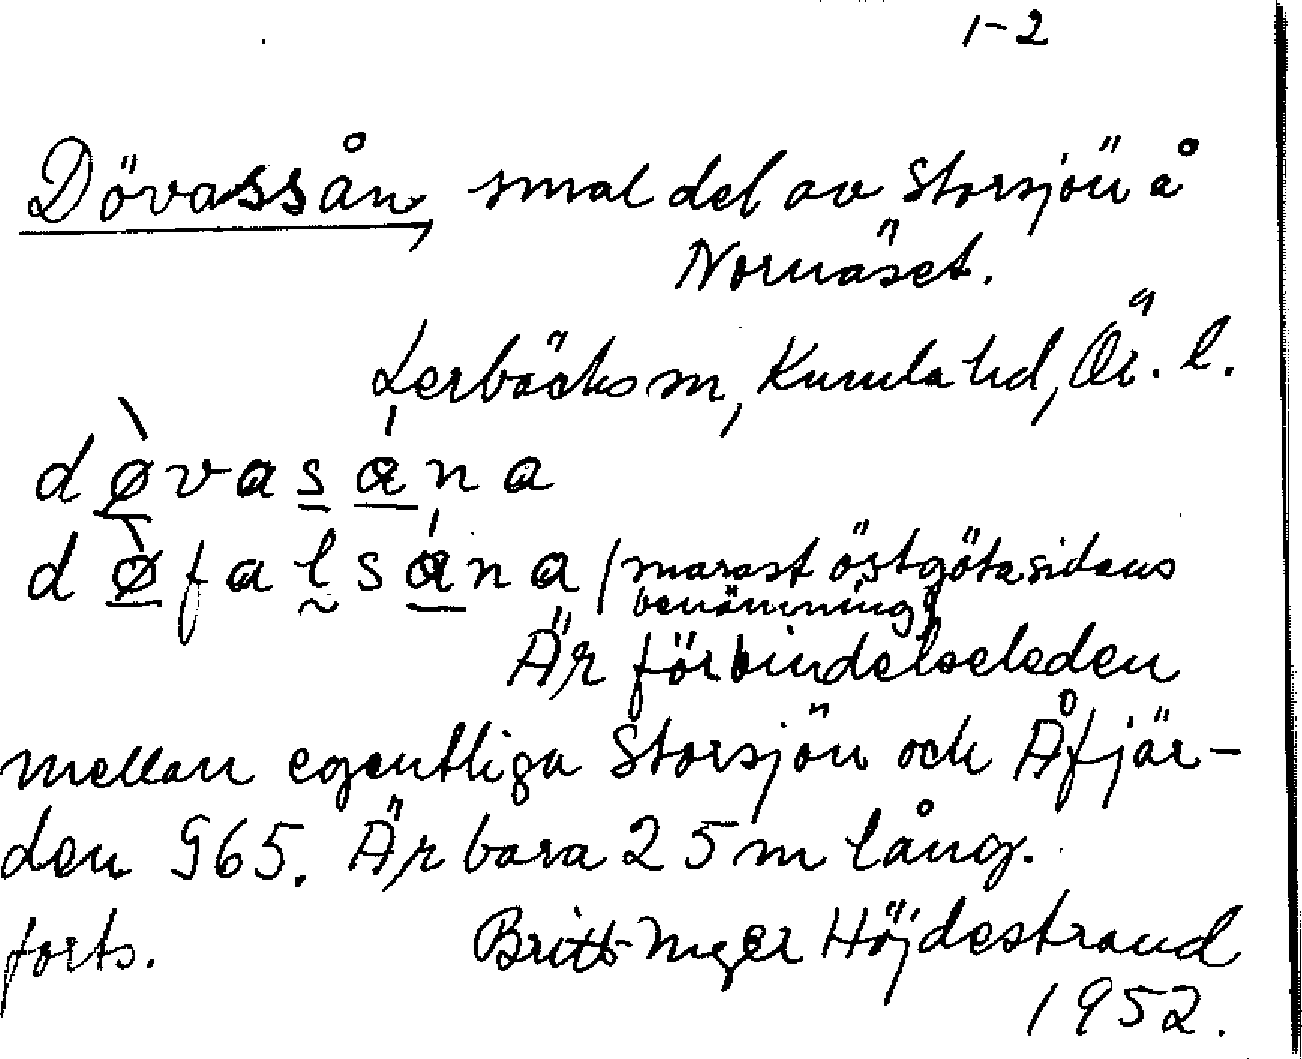 1-2
Dövassån, smal del av Storsjön å
Nornäset.
Lerbäcks sn, Kumla hd, Ör. l.
dø̀vasána
dø̀falsána (marast östgötasidans
benämning)
Är förbindelseleden
mellan egentliga Storsjön och Åfjär-
den 965. Är bara 25 m lång.
forts. Britt-Inger Höjdestrand
1952.